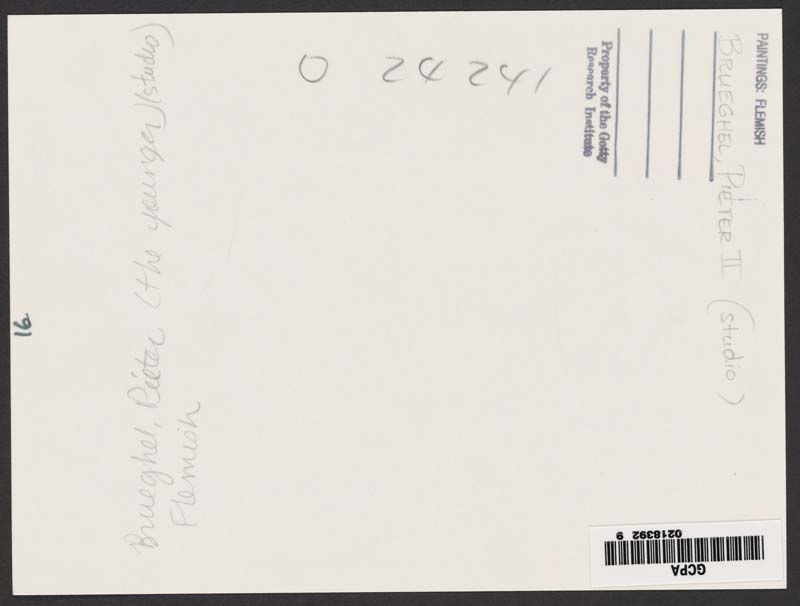 PAINTINGS: FLEMISH
BRUEGHEL, PIETER II (studio)
Property of the Getty
Research Institute
0 24 241
Brueghel, Pieter (the younger)(studio)
Flemish
16
GCPA
0218392 9